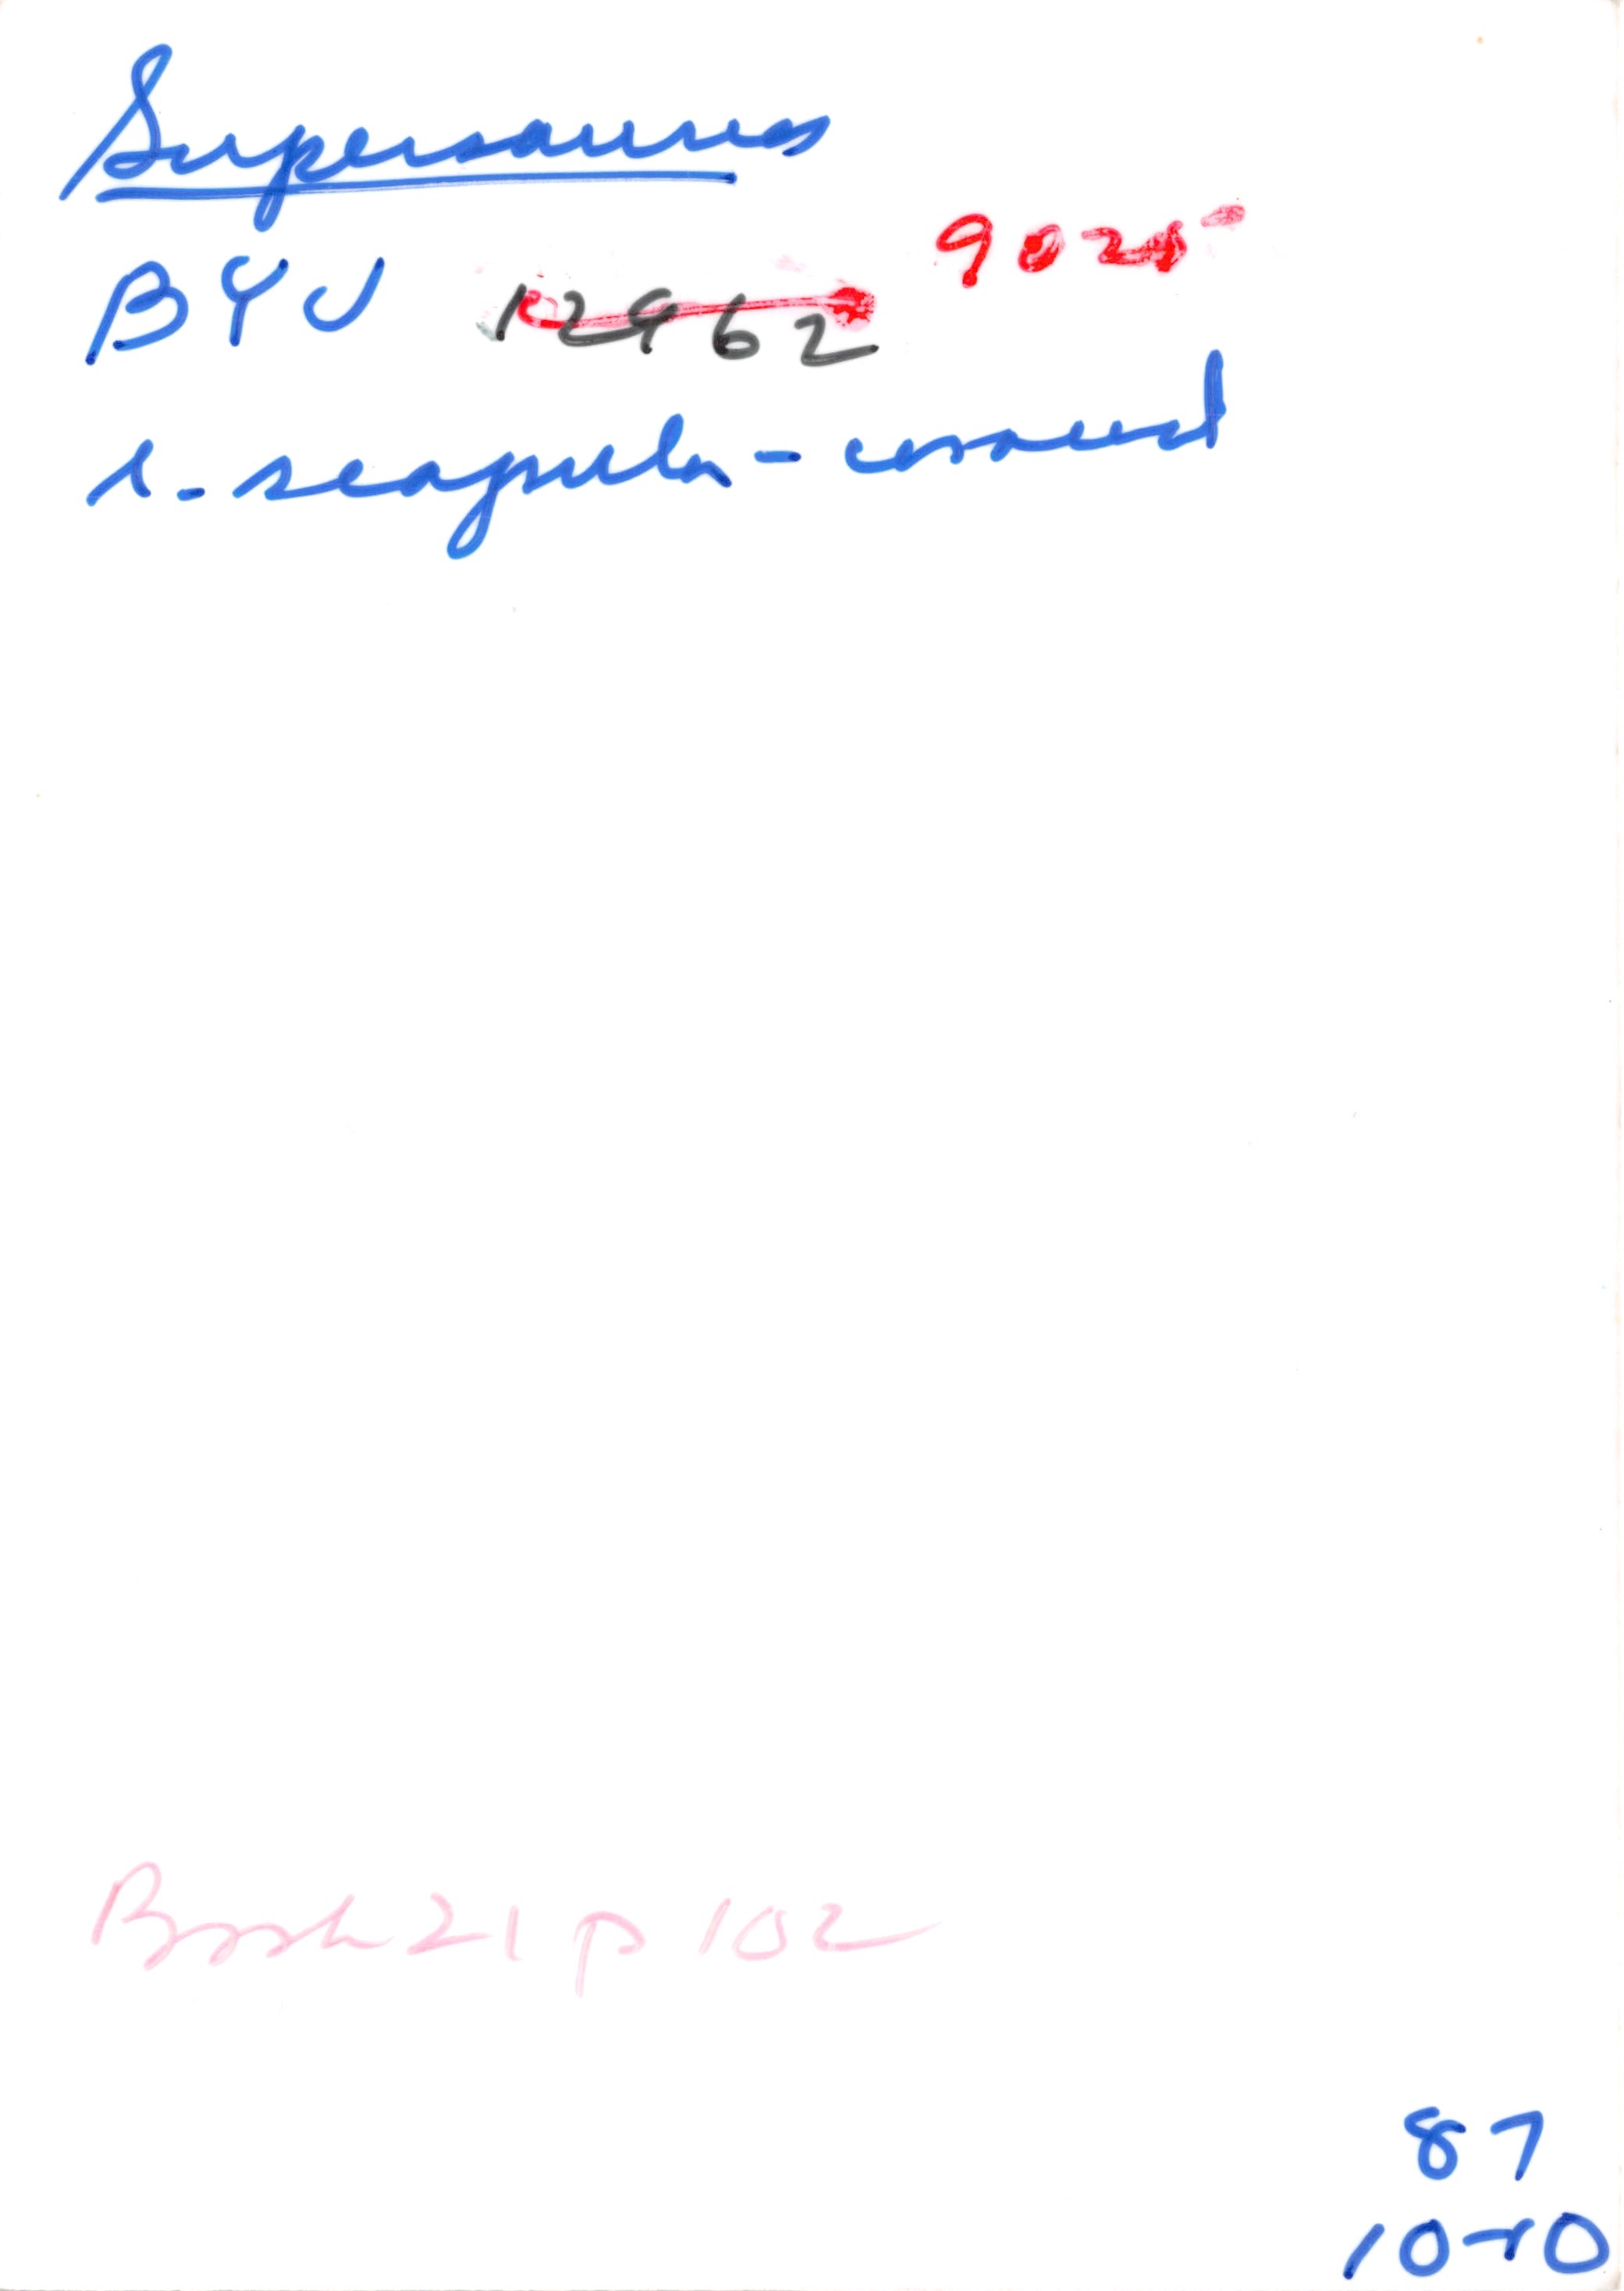 Supersaurus
BYU 12962 9025
r. scapula-coracoid
Book 21 p 102
87
10-10